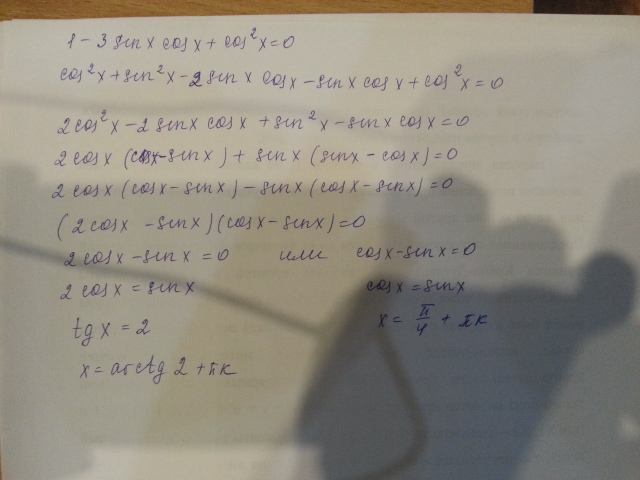 1 - 3 sin x cos x + cos²x = 0
cos²x + sin²x - 2 sin x cos x - sin x cos x + cos²x = 0
2cos²x - 2 sin x cos x + sin²x - sin x cos x = 0
2 cos x (cos x - sin x) + sin x (sin x - cos x) = 0
2 cos x (cos x - sin x) - sin x (cos x - sin x) = 0
(2 cos x - sin x)(cos x - sin x) = 0
2 cos x - sin x = 0 или cos x - sin x = 0
2 cos x = sin x cos x = sin x
tg x = 2 x = π/4 + πк
x = arctg 2 + πк